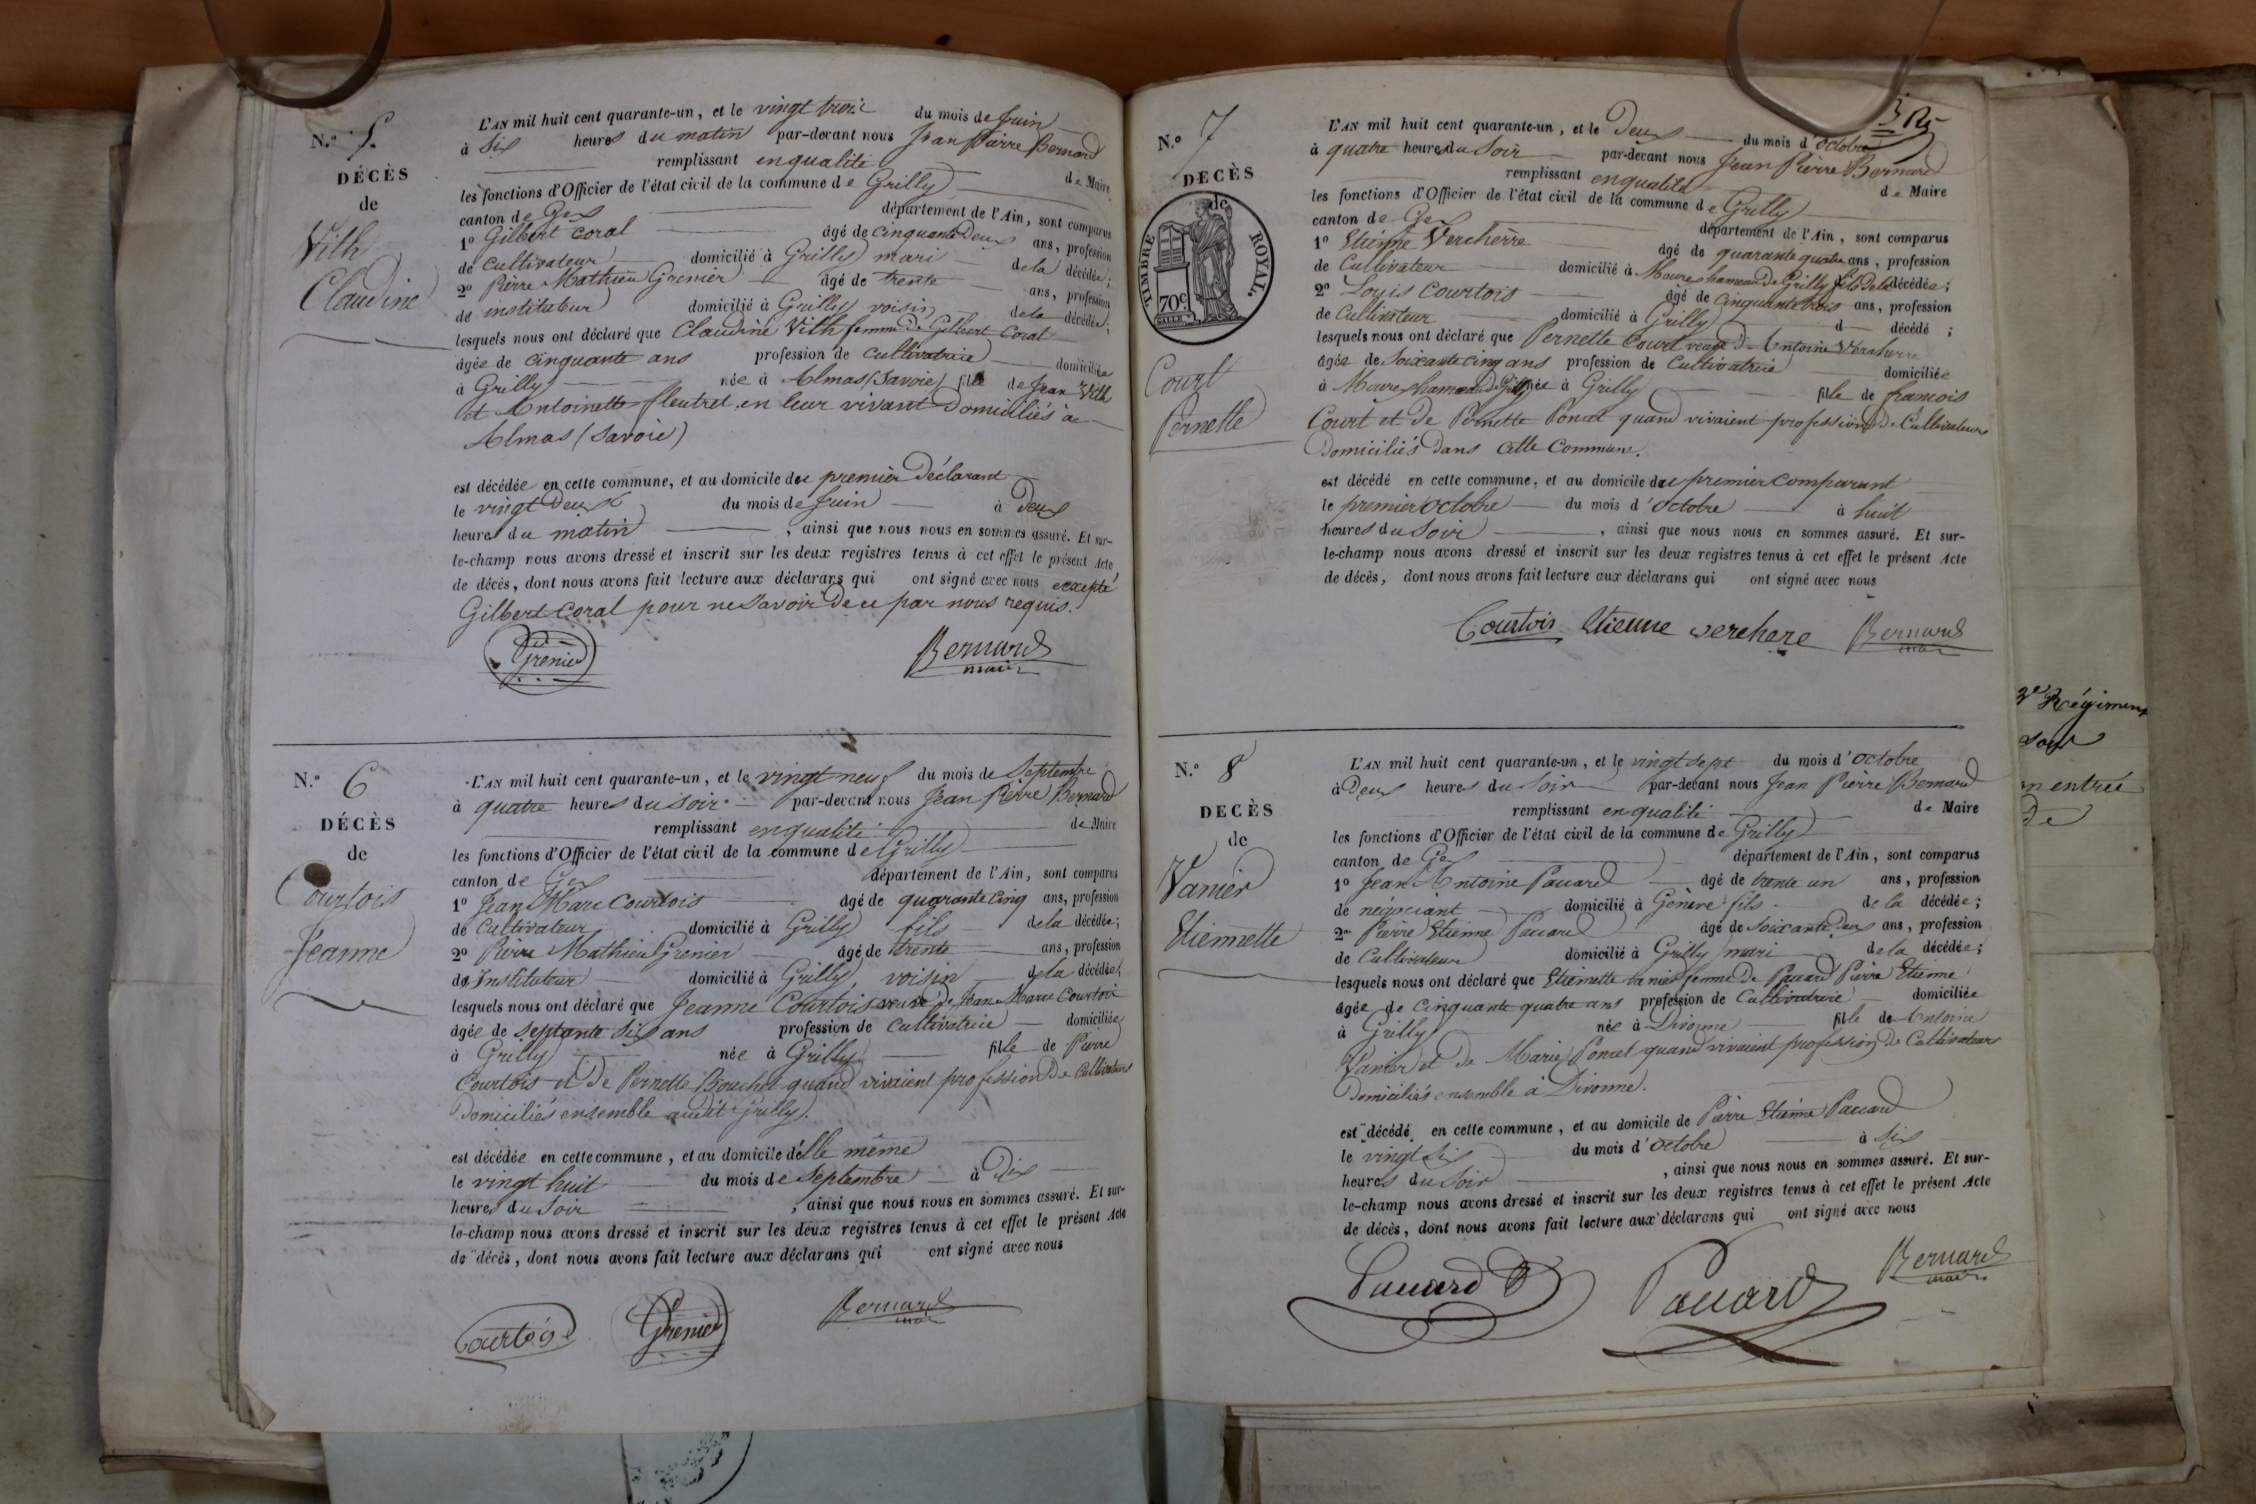 N.° 5.
DÉCÈS
de
Vith
Claudine
L'AN mil huit cent quarante-un, et le vingt trois du mois de Juin
à Six heures du matin par-devant nous Jean Pierre Bernard
remplissant en qualité de Maire
les fonctions d'Officier de l'état civil de la commune de Grilly
canton de Gex département de l'Ain, sont comparus
1° Gilbert Coral âgé de cinquante Deux ans, profession
de Cultivateur domicilié à Grilly mari de la décédée;
2° Pierre Mathieu Grenier âgé de trente ans, profession
de instituteur domicilié à Grilly voisin de la décédée;
lesquels nous ont déclaré que Claudine Vith femme de Gilbert Coral
âgée de cinquante ans profession de cultivatrice domiciliée
à Grilly née à Almas (Savoie) fille de Jean Vith
et Antoinette fleutret en leur vivant Domiciliés à
Almas (Savoie)
est décédée en cette commune, et au domicile du premier Déclarant
le vingt Deux du mois de Juin à Deux
heures du matin, ainsi que nous nous en sommes assuré. Et sur-
le-champ nous avons dressé et inscrit sur les deux registres tenus à cet effet le présent Acte
de décès, dont nous avons fait lecture aux déclarans qui ont signé avec nous excepté
Gilbert Coral pour ne savoir De ce par nous requis.
Grenier Bernard
maire
N.° 6
DÉCÈS
de
Courtois
Jeanne
L'AN mil huit cent quarante-un, et le vingt neuf du mois de Septembre
à quatre heures du soir par-devant nous Jean Pierre Bernard
remplissant en qualité de Maire
les fonctions d'Officier de l'état civil de la commune de Grilly
canton de Gex département de l'Ain, sont comparus
1° Jean Marc Courtois âgé de quarante cinq ans, profession
de Cultivateur domicilié à Grilly fils de la décédée;
2° Pierre Mathieu Grenier âgé de trente ans, profession
de Instituteur domicilié à Grilly, voisin de la décédée;
lesquels nous ont déclaré que Jeanne Courtois veuve de Jean Marc Courtois
âgée de septante six ans profession de cultivatrice domiciliée
à Grilly née à Grilly fille de Pierre
Courtois et De Pernette Bouchet quand vivaient profession De Cultivateurs
Domiciliés ensemble audit Grilly.
est décédée en cette commune, et au domicile d'elle même
le vingt huit du mois de Septembre à Dix
heures du Soir, ainsi que nous nous en sommes assuré. Et sur-
le-champ nous avons dressé et inscrit sur les deux registres tenus à cet effet le présent Acte
de décès, dont nous avons fait lecture aux déclarans qui ont signé avec nous
Courtois Grenier Bernard
N.° 7
DECÈS
TIMBRE ROYAL.
70c
Court
Pernette
L'AN mil huit cent quarante-un, et le Deux du mois d'octobre
à quatre heures du Soir par-devant nous Jean Pierre Bernard
remplissant en qualité de Maire
les fonctions d'Officier de l'état civil de la commune de Grilly
canton de Gex département de l'Ain, sont comparus
1° Etienne Vercherre âgé de quarante quatre ans, profession
de Cultivateur domicilié à Moure hameau de Grilly fils de la décédée;
2° Louis Courtois âgé de cinquante trois ans, profession
de Cultivateur domicilié à Grilly d décédé;
lesquels nous ont déclaré que Pernette Court veuve D'Antoine Vercherre
âgée de Soixante cinq ans profession de Cultivatrice domiciliée
à Moure hameau de Grilly née à Grilly fille de françois
Court et de Pernette Poncet quand vivaient profession de Cultivateurs
Domiciliés Dans cette Commune.
est décédé en cette commune, et au domicile du premier comparant
le premier octobre du mois d'octobre à huit
heures du Soir, ainsi que nous nous en sommes assuré. Et sur-
le-champ nous avons dressé et inscrit sur les deux registres tenus à cet effet le présent Acte
de décès, dont nous avons fait lecture aux déclarans qui ont signé avec nous
Courtois Etienne verchere Bernard
N.° 8
DECÈS
de
Vanier
Etiennette
L'AN mil huit cent quarante-un, et le vingt sept du mois d'octobre
à Deux heures du Soir par-devant nous Jean Pierre Bernard
remplissant en qualité de Maire
les fonctions d'Officier de l'état civil de la commune de Grilly
canton de Gex département de l'Ain, sont comparus
1° Jean Antoine Paccard âgé de trente un ans, profession
de négociant domicilié à Genève fils de la décédée;
2° Pierre Etienne Paccard âgé de Soixante Deux ans, profession
de Cultivateur domicilié à Grilly mari de la décédée;
lesquels nous ont déclaré que Etiennette Vanier femme De Paccard Pierre Etienne
âgée de Cinquante quatre ans profession de Cultivatrice domiciliée
à Grilly née à Divonne fille de Antoine
Vanier et de Marie Poncet quand vivaient profession De Cultivateurs
Domiciliés ensemble à Divonne.
est décédé en cette commune, et au domicile de Pierre Etienne Paccard
le vingt Six du mois d'octobre à six
heures du Soir, ainsi que nous nous en sommes assuré. Et sur-
le-champ nous avons dressé et inscrit sur les deux registres tenus à cet effet le présent Acte
de décès, dont nous avons fait lecture aux déclarans qui ont signé avec nous
Paccard Paccard Bernard
maire
Régiment
entrée
de